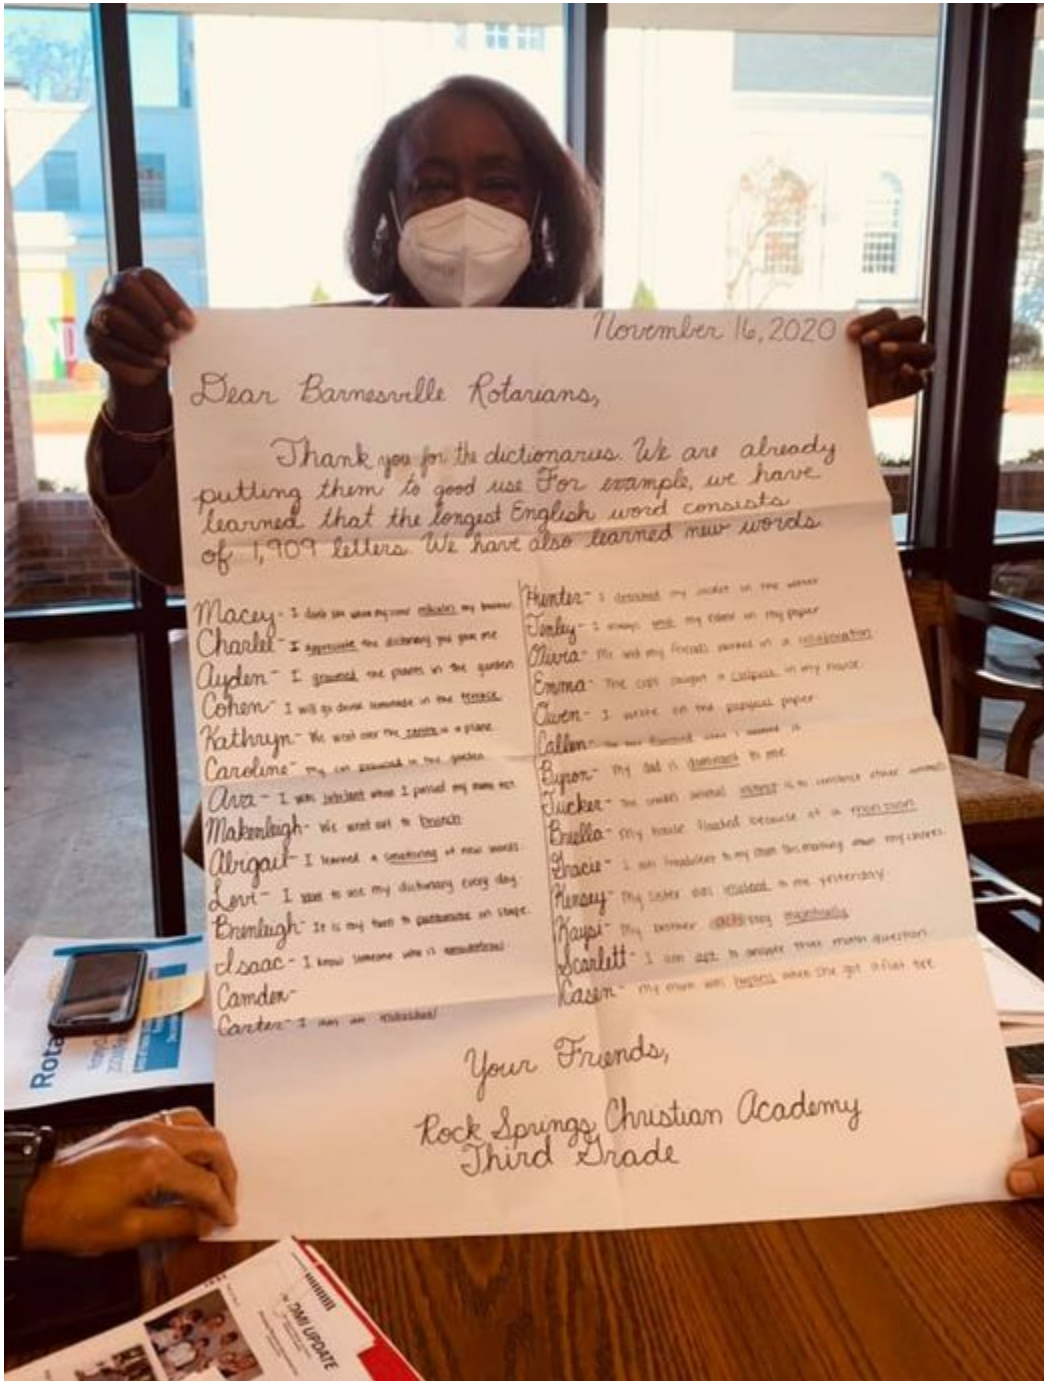 November 16, 2020
Dear Barnesville Rotarians,
Thank you for the dictionaries. We are already
putting them to good use For example, we have
learned that the longest English word consists
of 1,909 letters. We have also learned new words.
Macey- I my brother.
Charlei- I appreciate the dictionary you gave me
Ayden- I the plants in the garden
Cohen- I will go drink lemonade in the terrace.
Kathryn- We went over the in a plane.
Caroline- My cat in the garden
Ava- I was jubilant when I passed my
Makenleigh- We went out to brunch
Abigail- I learned a smattering of new words.
Levi- I have to use my dictionary every day.
Brenleigh- It is my turn to on stage.
Isaac- I know someone who is
Camden-
Carter- I am an
Hunter- I my jacket in the winter
Tenley- I always my name on my paper
Olivia- Me and my friends worked in a collaboration
Emma- The cops caught a in my house.
Owen- I write on the papyrus paper.
Callen-
Byron- My dad is dominant to me
Tucker- The animal instinct is to constrict other animals
Briella- My house flooded because of a monsoon
Gracie- I am to my mom this morning my chores.
Kensey- My sister was insolent to me yesterday.
Kaysi- My brother
Scarlett- I am apt to answer that math question
Kasen- My mom was hapless when she got a flat tire.
Your Friends,
Rock Springs Christian Academy
Third Grade
Rota
DMI UPDATE